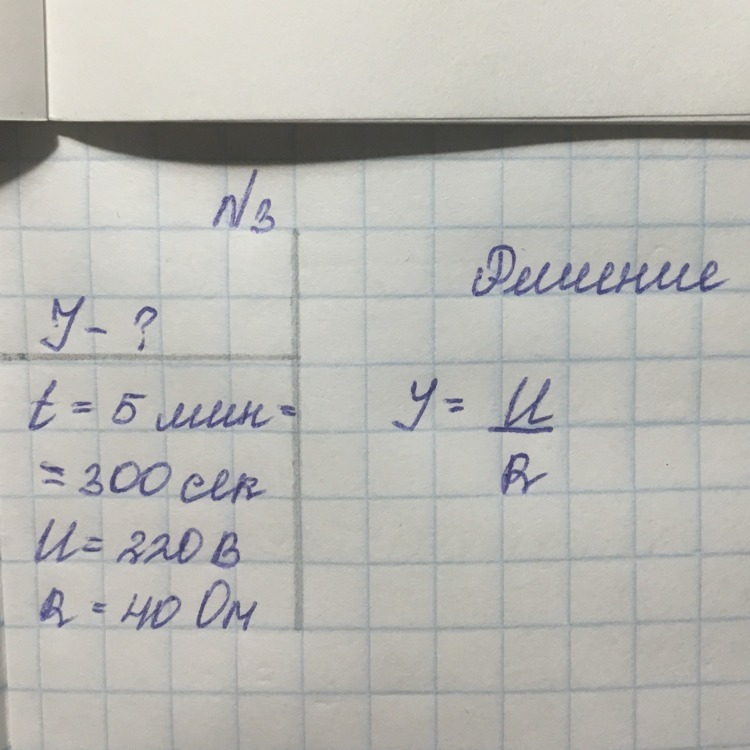 N3
Решение
I - ?
t = 5 мин =
= 300 сек
U = 220 В
R = 40 Ом
I = U
R